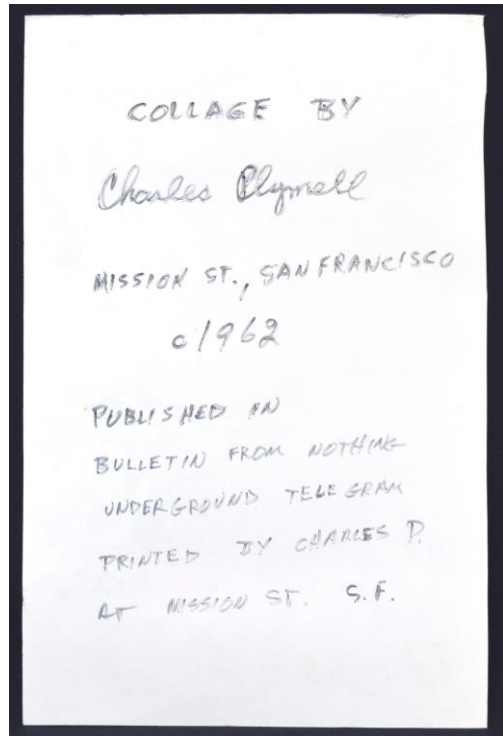 COLLAGE BY
Charles Plymell
MISSION ST., SAN FRANCISCO
c1962
PUBLISHED IN
BULLETIN FROM NOTHING
UNDERGROUND TELEGRAM
PRINTED BY CHARLES P.
AT MISSION ST. S.F.